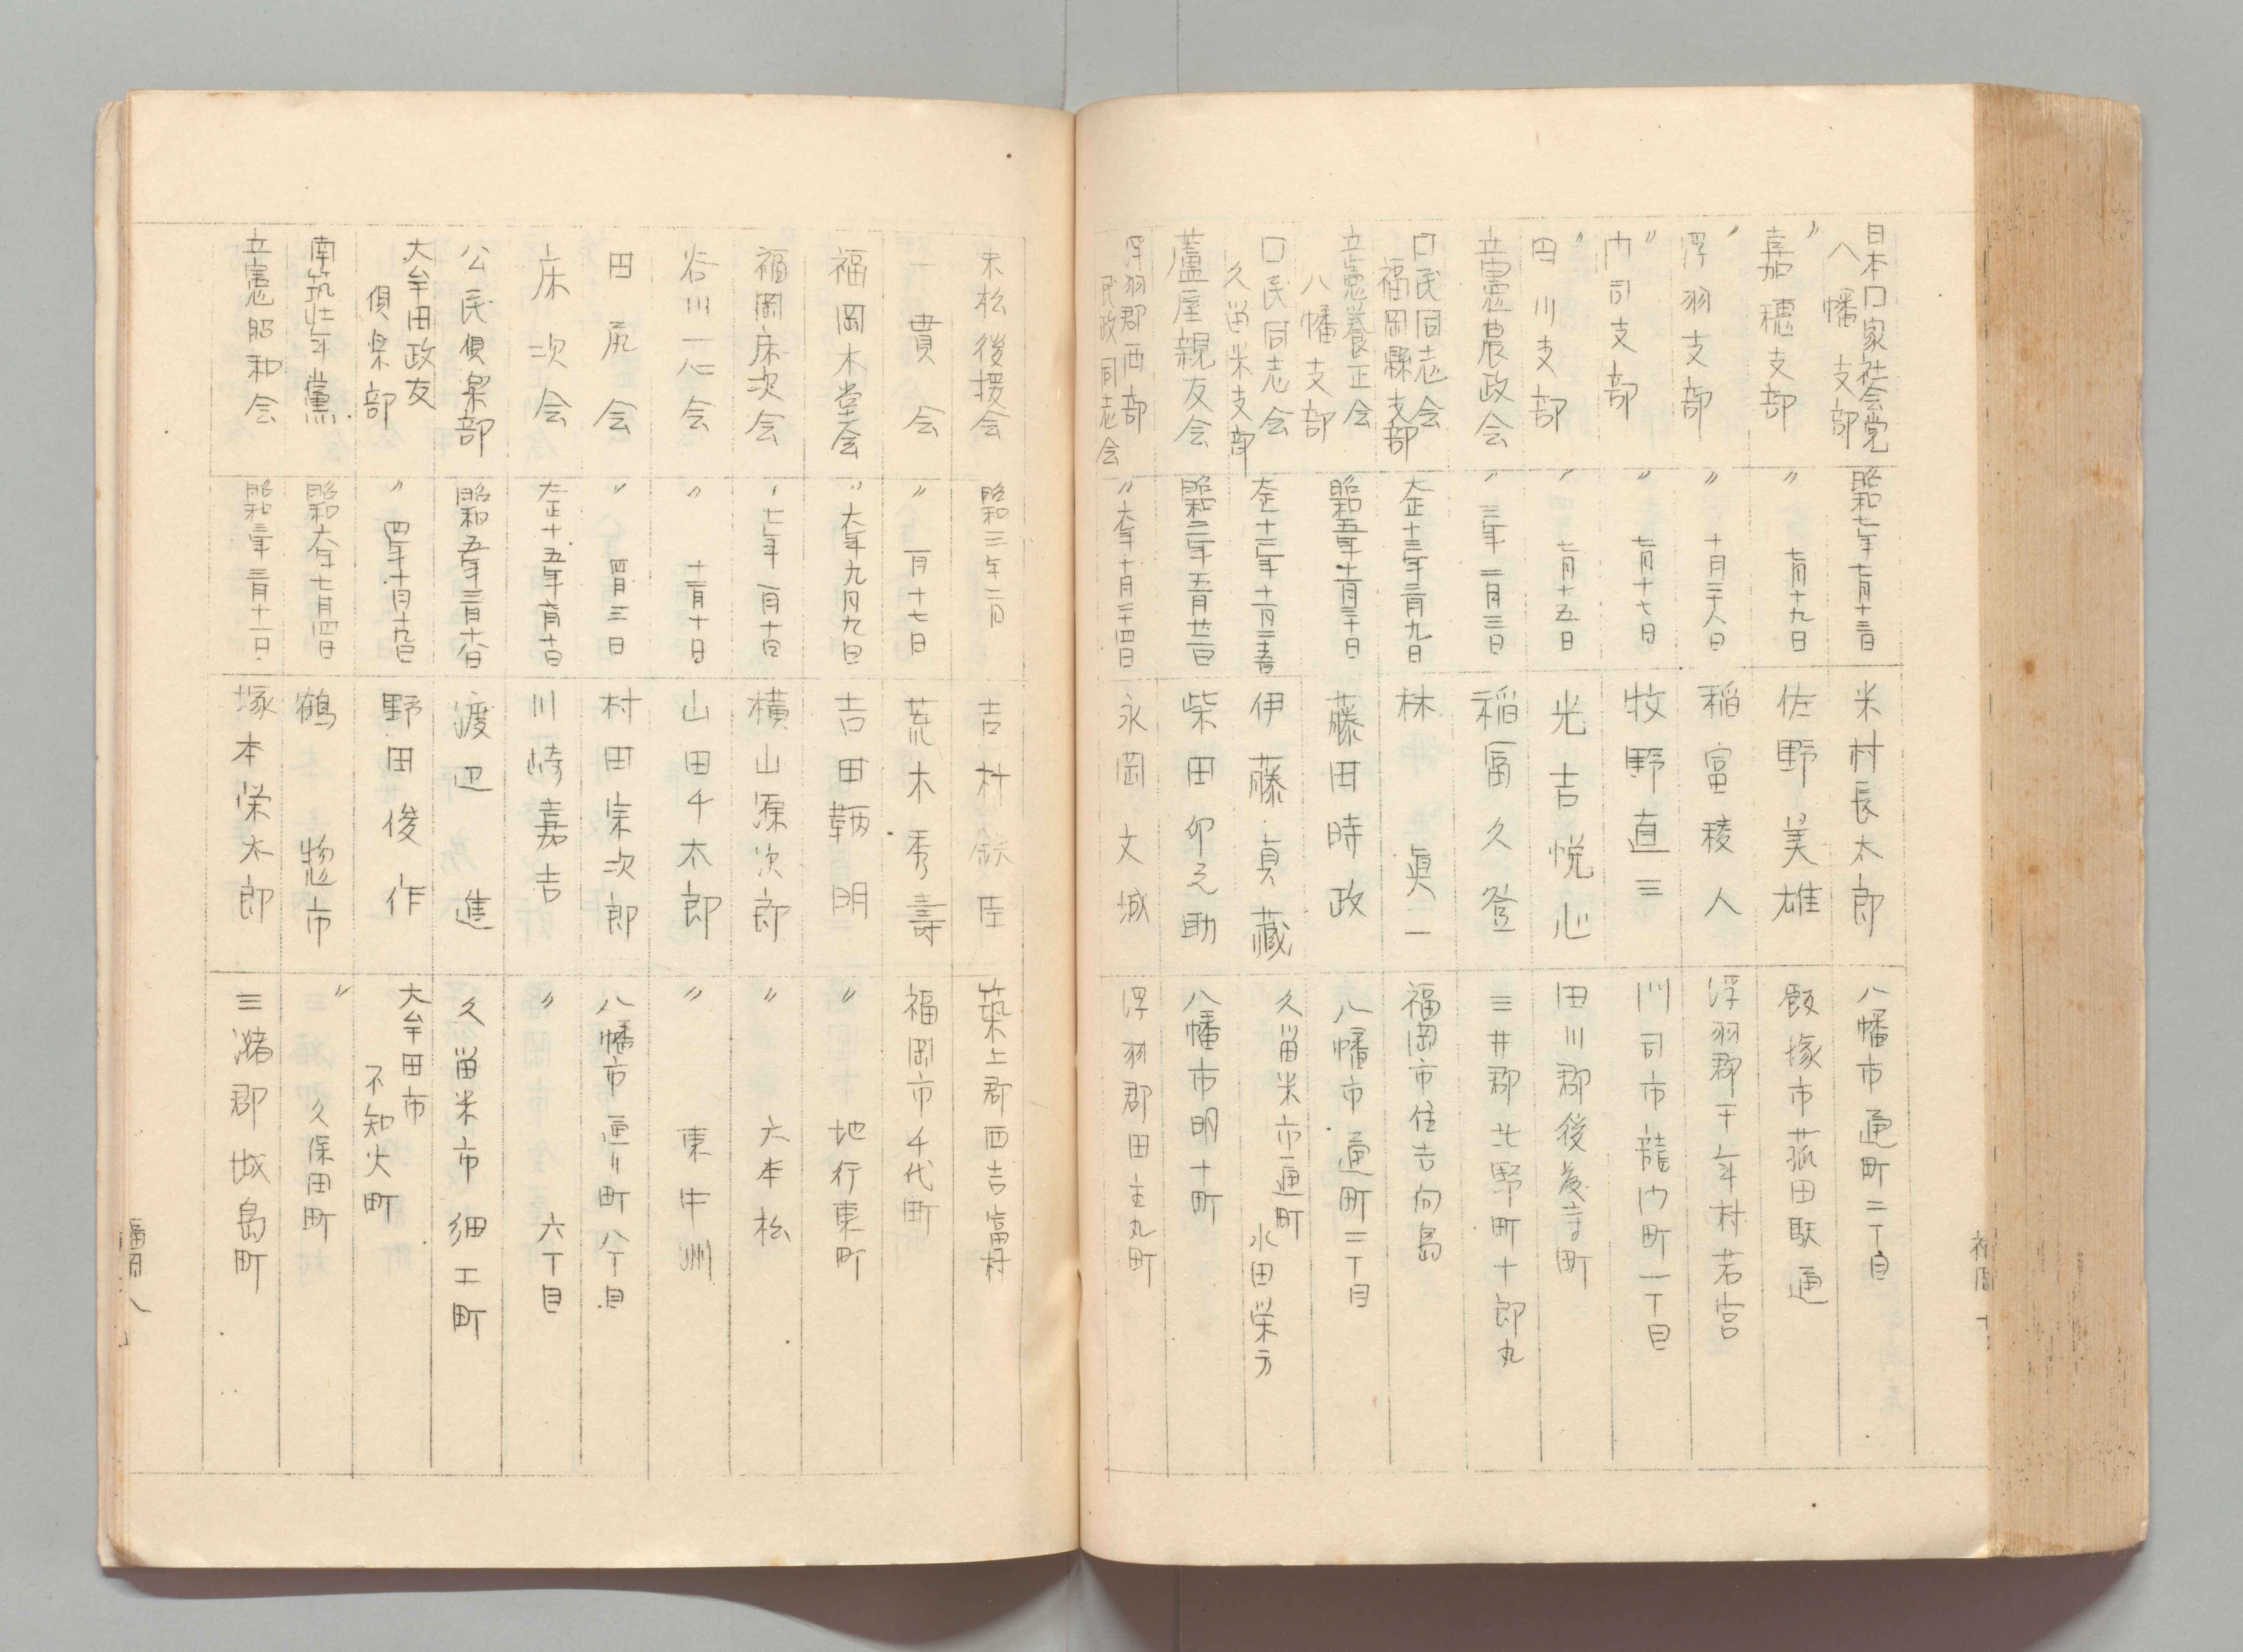 日本囗家社会党
八幡支部
昭和七年七月十三日
米村長太郎
八幡市通町二丁目
〃
嘉穂支部
〃 七月十九日
佐野美雄
飯塚市菰田駅通
〃
浮羽支部
〃 十月二十八日
稲富稜人
浮羽郡千年村若宮
〃
門司支部
〃 七月十七日
牧野直三
門司市龍門町一丁目
〃
田川支部
〃 七月十五日
光吉悦心
田川郡後藤寺町
立憲農政会
〃 三年二月三日
稲冨久登
三井郡北野町十郎丸
囗民同志会
福岡縣支部
大正十三年三月九日
林眞一
福岡市住吉向島
立憲養正会
八幡支部
昭和五年十一月三十日
藤田時政
八幡市通町二丁目
囗民同志会
久留米支部
伊藤貞藏
久留米市通町
水田栄方
蘆屋親友会
昭和二年五月廿二日
柴田卯之助
八幡市明十町
浮羽郡西部
民政同志会
〃 六年十月二十四日
永岡文城
浮羽郡田主丸町
福岡
末松後援会
昭和三年二月
吉村鉄臣
築上郡西吉富村
一貫会
〃 一月十七日
荒木秀壽
福岡市千代町
福岡木堂会
〃 六年九月九日
吉田鞆明
〃 地行東町
福岡床次会
〃 七年一月十日
横山源次郎
〃 六本松
谷川一心会
〃 十二月十日
山田千太郎
〃 東中洲
田尻会
〃 四月三日
村田宗次郎
八幡市通川町八丁目
床次会
川崎嘉吉
〃 六丁目
公民倶楽部
昭和五年三月十六日
渡辺進
久留米市細工町
大牟田政友
倶楽部
〃 四年十月十九日
野田俊作
大牟田市
不知火町
南筑壮年黨
昭和六年七月四日
鶴惣市
〃
久保田町
立憲昭和会
昭和三年三月十一日
塚本栄太郎
三潴郡城島町
福岡 八